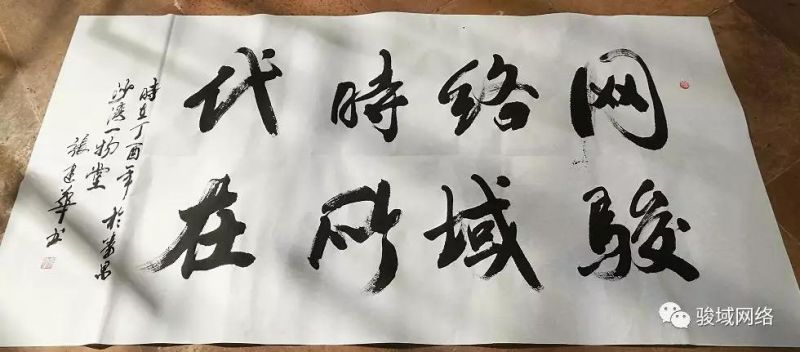 网络時代
駿域所在
時在丁酉年於番禺
沙湾一物堂
張建華书
骏域网络